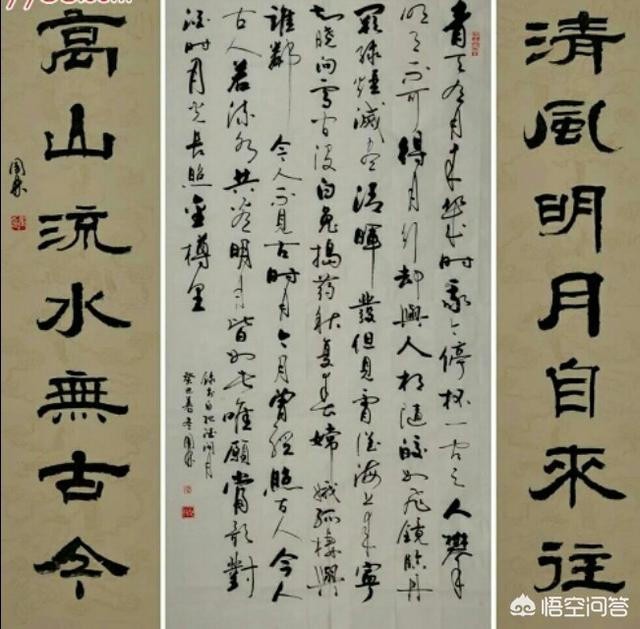 清風明月自來往
青天有月来幾时我今停杯一问之人攀
明月不可得月行却與人相随皎如飛鏡臨丹
闕绿烟滅尽清晖發但見宵従海上来寧
知曉向雲间没白兔搗药秋复春嫦娥孤棲與
誰鄰今人不見古时月今月曾经照古人今人
古人若流水共看明月皆如此唯願當歌對
酒时月光长照金樽里
録李白把酒问月
高山流水無古今
悟空问答